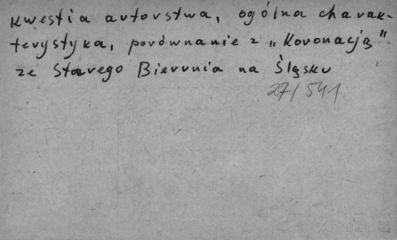 Kwestia autorstwa, ogólna charak-
terystyka, porównanie z „Koronacją"
ze Starego Bierunia na Śląsku
27/541